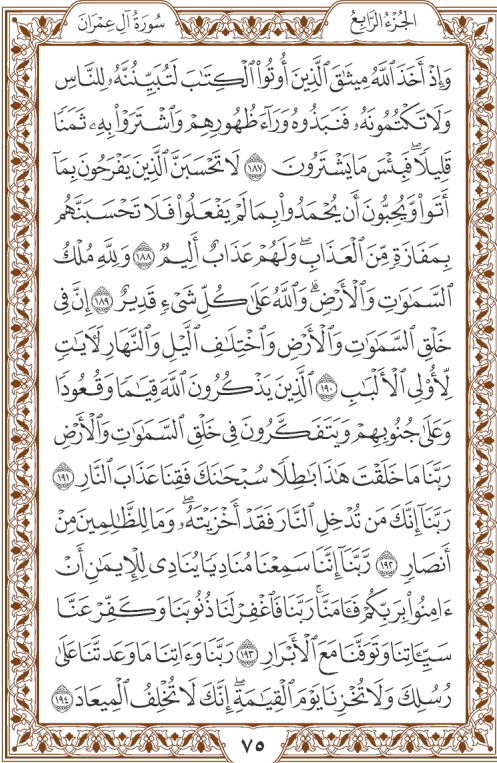 الجُزْءُ الرَّابِعُ
سُورَةُ آلِ عِمْرَانَ
وَإِذْ أَخَذَ ٱللَّهُ مِيثَٰقَ ٱلَّذِينَ أُوتُوا۟ ٱلْكِتَٰبَ لَتُبَيِّنُنَّهُۥ لِلنَّاسِ
وَلَا تَكْتُمُونَهُۥ فَنَبَذُوهُ وَرَآءَ ظُهُورِهِمْ وَٱشْتَرَوْا۟ بِهِۦ ثَمَنًا
قَلِيلًا ۖ فَبِئْسَ مَا يَشْتَرُونَ ١٨٧ لَا تَحْسَبَنَّ ٱلَّذِينَ يَفْرَحُونَ بِمَآ
أَتَوا۟ وَّيُحِبُّونَ أَن يُحْمَدُوا۟ بِمَا لَمْ يَفْعَلُوا۟ فَلَا تَحْسَبَنَّهُم
بِمَفَازَةٍ مِّنَ ٱلْعَذَابِ ۖ وَلَهُمْ عَذَابٌ أَلِيمٌ ١٨٨ وَلِلَّهِ مُلْكُ
ٱلسَّمَٰوَٰتِ وَٱلْأَرْضِ ۗ وَٱللَّهُ عَلَىٰ كُلِّ شَىْءٍ قَدِيرٌ ١٨٩ إِنَّ فِى
خَلْقِ ٱلسَّمَٰوَٰتِ وَٱلْأَرْضِ وَٱخْتِلَٰفِ ٱلَّيْلِ وَٱلنَّهَارِ لَءَايَٰتٍ
لِّأُو۟لِى ٱلْأَلْبَٰبِ ١٩٠ ٱلَّذِينَ يَذْكُرُونَ ٱللَّهَ قِيَٰمًا وَقُعُودًا
وَعَلَىٰ جُنُوبِهِمْ وَيَتَفَكَّرُونَ فِى خَلْقِ ٱلسَّمَٰوَٰتِ وَٱلْأَرْضِ
رَبَّنَا مَا خَلَقْتَ هَٰذَا بَٰطِلًا سُبْحَٰنَكَ فَقِنَا عَذَابَ ٱلنَّارِ ١٩١
رَبَّنَآ إِنَّكَ مَن تُدْخِلِ ٱلنَّارَ فَقَدْ أَخْزَيْتَهُۥ ۖ وَمَا لِلظَّٰلِمِينَ مِنْ
أَنصَارٍ ١٩٢ رَّبَّنَآ إِنَّنَا سَمِعْنَا مُنَادِيًا يُنَادِى لِلْإِيمَٰنِ أَنْ
ءَامِنُوا۟ بِرَبِّكُمْ فَـَٔامَنَّا ۚ رَبَّنَا فَٱغْفِرْ لَنَا ذُنُوبَنَا وَكَفِّرْ عَنَّا
سَيِّـَٔاتِنَا وَتَوَفَّنَا مَعَ ٱلْأَبْرَارِ ١٩٣ رَبَّنَا وَءَاتِنَا مَا وَعَدتَّنَا عَلَىٰ
رُسُلِكَ وَلَا تُخْزِنَا يَوْمَ ٱلْقِيَٰمَةِ ۗ إِنَّكَ لَا تُخْلِفُ ٱلْمِيعَادَ ١٩٤
٧٥